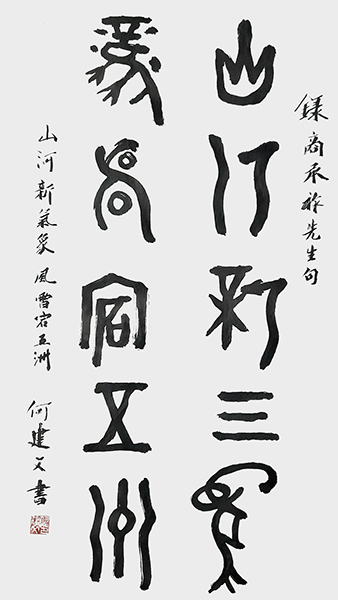 録商承祚先生句
山河新气象
風雷宕五洲
山河新氣象 風雷宕五洲
何建書